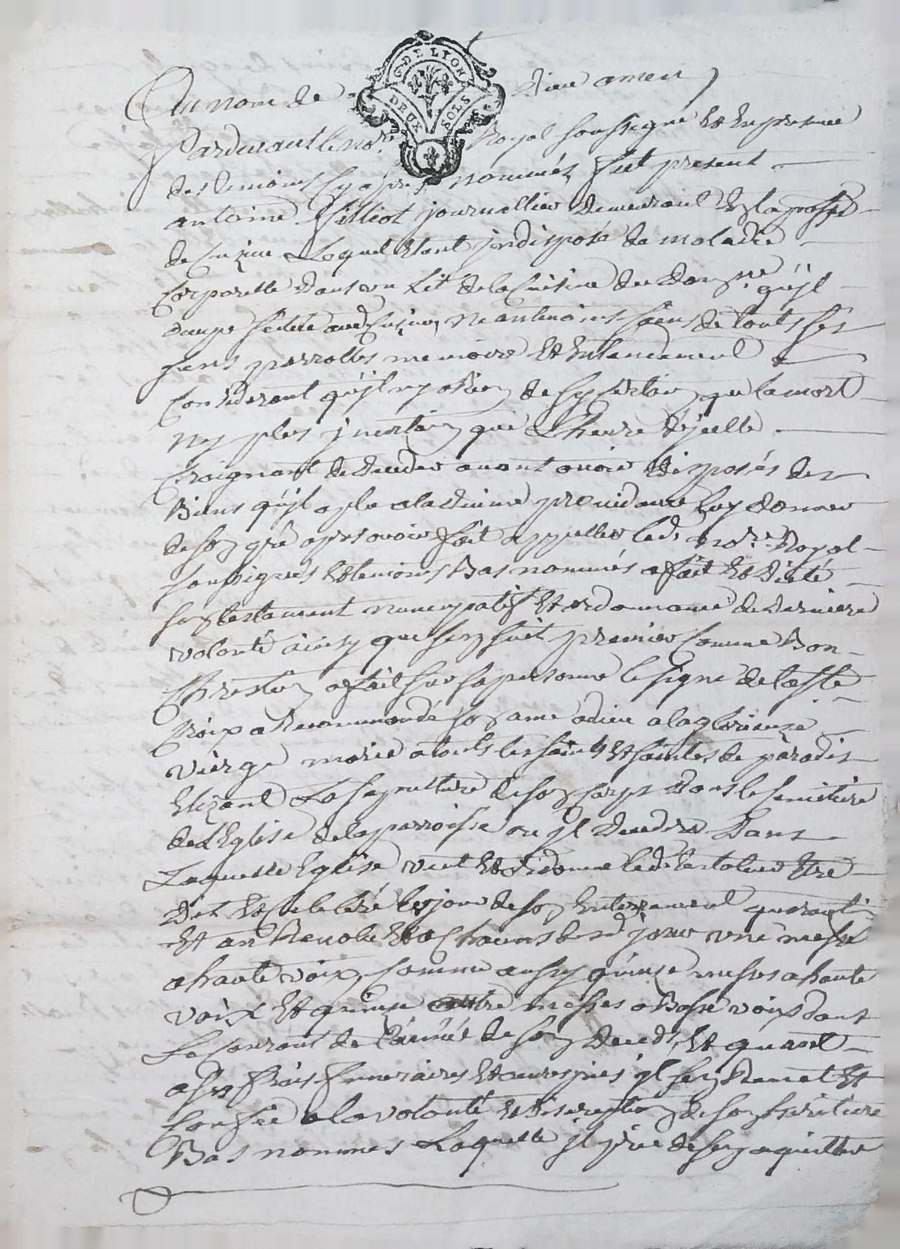 G. DE LYON
DEUX SOLS
Au nom de Dieu amen
Pardevant le nore Royal soussigné et en presence
des temoins cy apres nommés fut present
antoine Milliot journallier demeurant en la parse
de Cuzieu Lequel etant jndisposé de maladie
Corporelle dans un Lit de la Cuisine du Domne qu'jl
Cuzieu, neantmoins sain de touts ses
sens parrolles memoire et entendement
Considerant qu'jl ny a Rien de sy Certain que la mort
ny plus jncertain que L'heure d'jcelle
Craignant de deceder avant avoir disposés des
Biens qu'jl a plu a la divine providence luy donner
de son gré apres avoir fait appeller led. nore Royal
soussignés et temoins Bas nommés a fait et dicté
son testament nuncupatif et ordonnance de derniere
volonté ainsy que sen suit premier Comme Bon
Chrestien a fait sur sa personne le signe de la ste
Croix a Recommandé son ame a dieu a la glorieuze
vierge marie a touts les saints et saintes de paradis
Elizant La sepulture de son Corps dans le semitiere
de L'Eglise de la parroisse ou jl decedera Dans
Laquelle Eglise veut et ordonne led. testateur Etre
Dit et Celebré les jours de son Enterrement quarantin
et an Revolu et a Chacuns desd. jours une messe
a haute voix, Comme aussy quinze messes a haute
voix Et quinze autre messes a Basse voix dans
Le Courant de L'année de son deceds, Et quant
a ses frais funeraires et jl sen Remet et
Confie a la volonté et discretion de son heritiere
Bas nommés Laquelle jl prie de sen aquitter